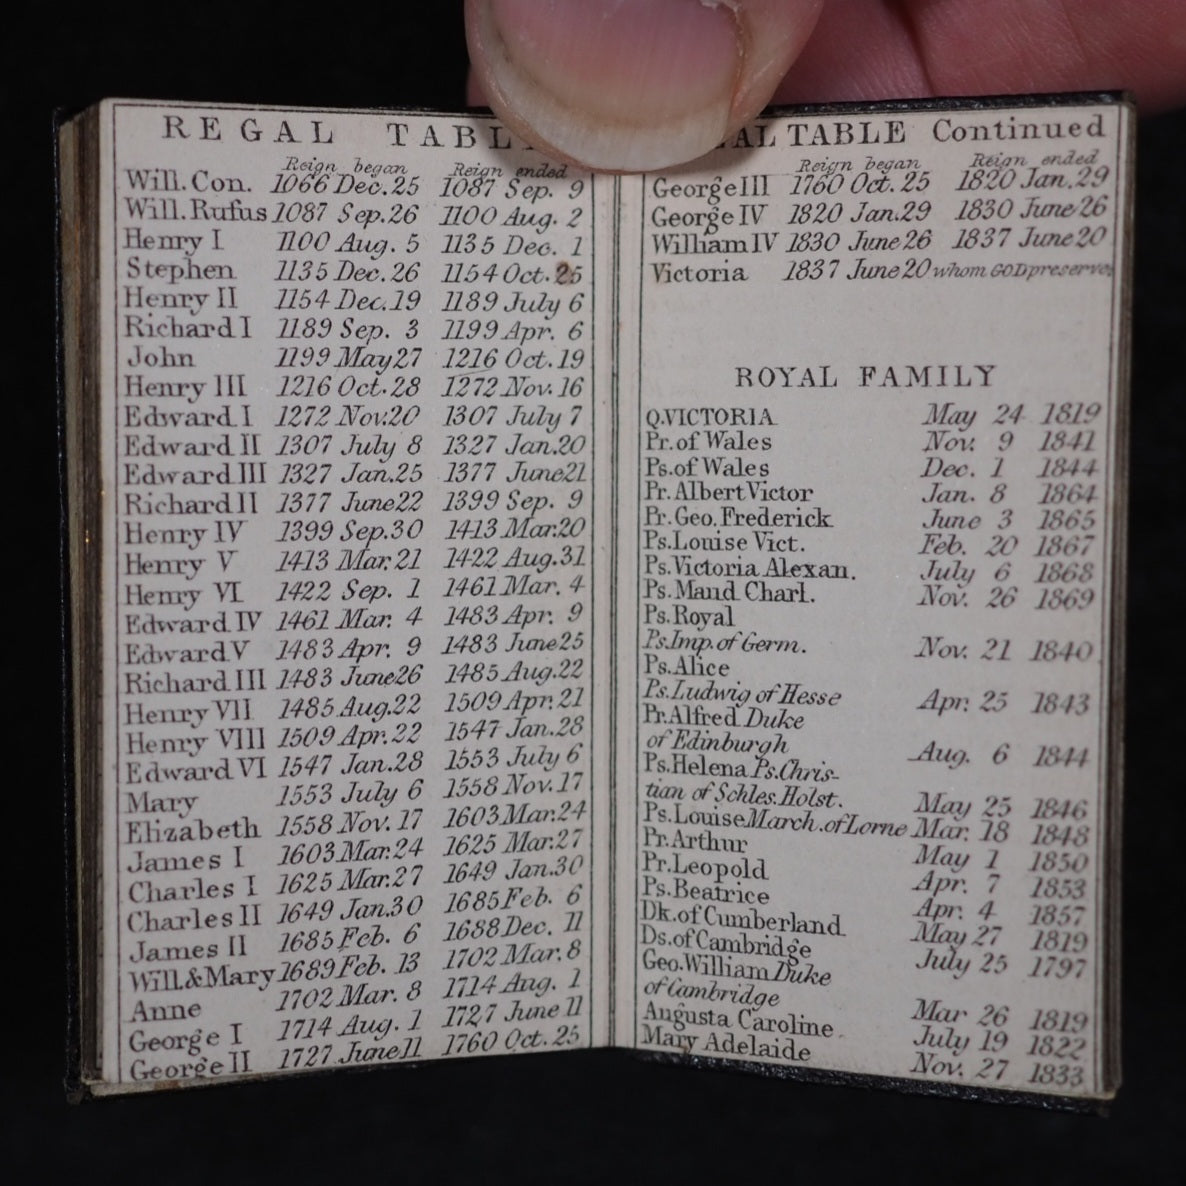 REGAL TABL
Reign began Reign ended
Will. Con. 1066 Dec. 25 1087 Sep. 9
Will. Rufus 1087 Sep. 26 1100 Aug. 2
Henry I 1100 Aug. 5 1135 Dec. 1
Stephen 1135 Dec. 26 1154 Oct. 25
Henry II 1154 Dec. 19 1189 July 6
Richard I 1189 Sep. 3 1199 Apr. 6
John 1199 May 27 1216 Oct. 19
Henry III 1216 Oct. 28 1272 Nov. 16
Edward I 1272 Nov. 20 1307 July 7
Edward II 1307 July 8 1327 Jan. 20
Edward III 1327 Jan. 25 1377 June 21
Richard II 1377 June 22 1399 Sep. 9
Henry IV 1399 Sep. 30 1413 Mar. 20
Henry V 1413 Mar. 21 1422 Aug. 31
Henry VI 1422 Sep. 1 1461 Mar. 4
Edward IV 1461 Mar. 4 1483 Apr. 9
Edward V 1483 Apr. 9 1483 June 25
Richard III 1483 June 26 1485 Aug. 22
Henry VII 1485 Aug. 22 1509 Apr. 21
Henry VIII 1509 Apr. 22 1547 Jan. 28
Edward VI 1547 Jan. 28 1553 July 6
Mary 1553 July 6 1558 Nov. 17
Elizabeth 1558 Nov. 17 1603 Mar. 24
James I 1603 Mar. 24 1625 Mar. 27
Charles I 1625 Mar. 27 1649 Jan. 30
Charles II 1649 Jan. 30 1685 Feb. 6
James II 1685 Feb. 6 1688 Dec. 11
Will. & Mary 1689 Feb. 13 1702 Mar. 8
Anne 1702 Mar. 8 1714 Aug. 1
George I 1714 Aug. 1 1727 June 11
George II 1727 June 11 1760 Oct. 25
AL TABLE Continued
Reign began Reign ended
George III 1760 Oct. 25 1820 Jan. 29
George IV 1820 Jan. 29 1830 June 26
William IV 1830 June 26 1837 June 20
Victoria 1837 June 20 whom GOD preserve
ROYAL FAMILY
Q. VICTORIA May 24 1819
Pr. of Wales Nov. 9 1841
Ps. of Wales Dec. 1 1844
Pr. Albert Victor Jan. 8 1864
Pr. Geo. Frederick June 3 1865
Ps. Louise Vict. Feb. 20 1867
Ps. Victoria Alexan. July 6 1868
Ps. Maud Charl. Nov. 26 1869
Ps. Royal
Ps. Imp. of Germ. Nov. 21 1840
Ps. Alice
Ps. Ludwig of Hesse Apr. 25 1843
Pr. Alfred Duke
of Edinburgh Aug. 6 1844
Ps. Helena Ps. Chris-
tian of Schles. Holst. May 25 1846
Ps. Louise March. of Lorne Mar. 18 1848
Pr. Arthur May 1 1850
Pr. Leopold Apr. 7 1853
Ps. Beatrice Apr. 4 1857
Dk. of Cumberland May 27 1819
Ds. of Cambridge July 25 1797
Geo. William Duke
of Cambridge Mar 26 1819
Augusta Caroline July 19 1822
Mary Adelaide Nov. 27 1833